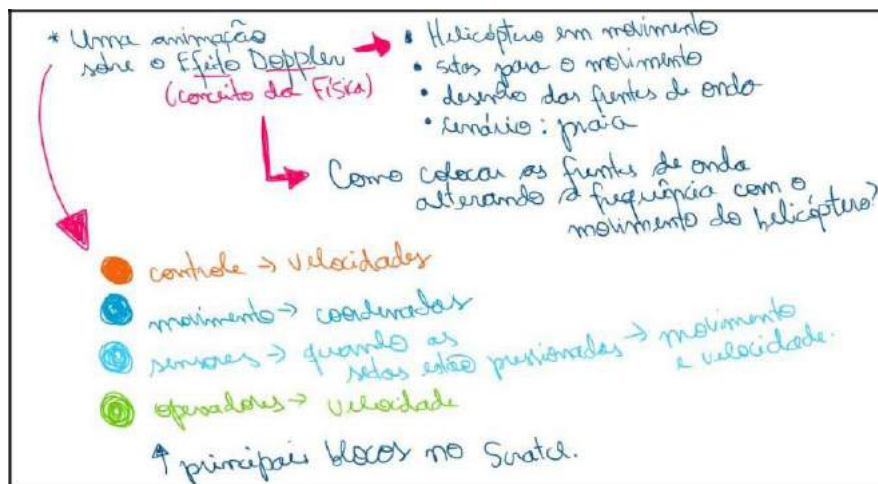 * Uma animação
sobre o Efeito Doppler
(conceito da Física)
• Helicóptero em movimento
• setas para o movimento
• desenho das frentes de onda
• cenário: praia
Como colocar as frentes de onda
alterando a frequência com o
movimento do helicóptero?
controle → velocidades
movimento → coordenadas
sensores → quando as
setas estão pressionadas → movimento
e velocidade.
operadores → velocidade
↑ principais blocos no Scratch.